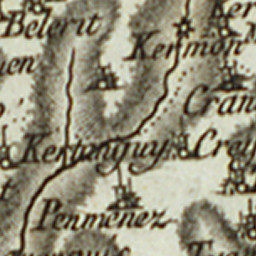 Belerit
Ker
Kermon
uen
Cran
Kertanguy
Crey
t
Penmenez